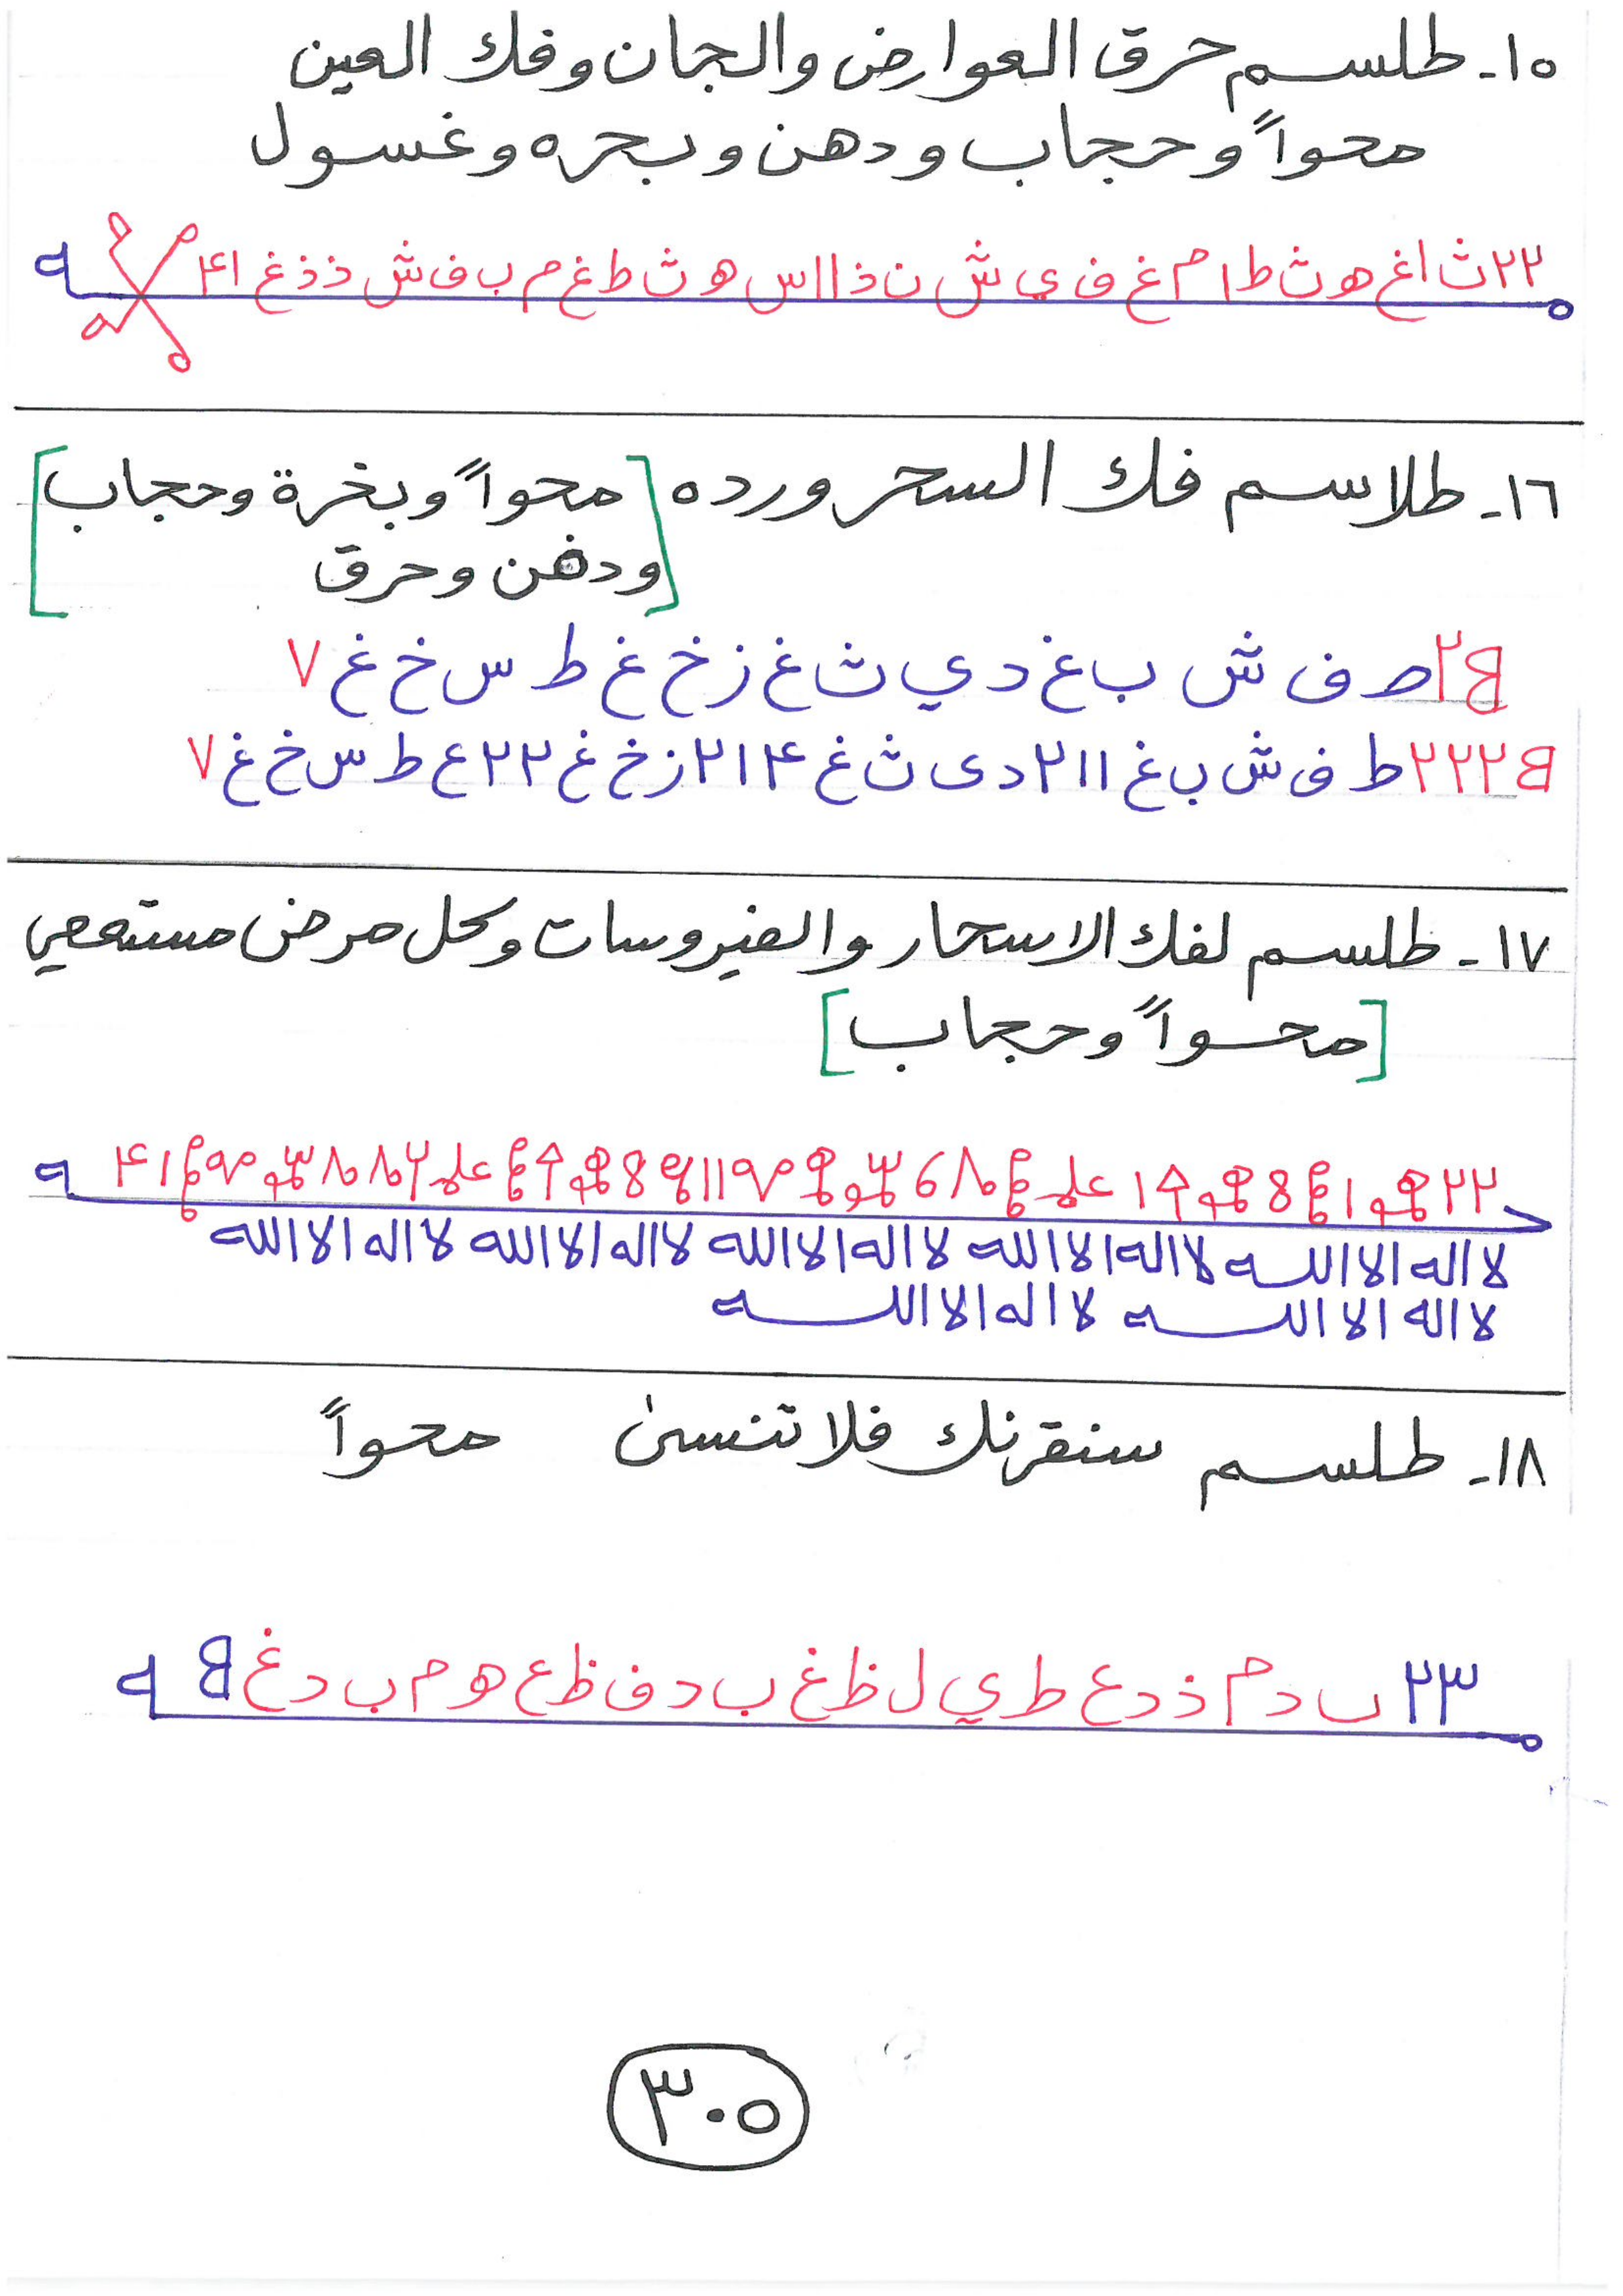 ١٥- طلسم حرق العوارض والجان وفك العين
محواً وحجاب ودهن وبخره وغسول
٢٢ ث ا غ ه ث ط ا م غ ف ي ش ن ذ ا ا س ه ث ط غ م ب ف ش ذ ذ غ ا ۴
١٦- طلاسم فك السحر ورده [محواً وبخرة وحجاب
ودهن وحرق]
B٢ ص ف ش ب غ د ي ث غ ز خ غ ط س خ غ ٧
B٢٢٢ ط ف ش ب غ ٢١١ د ى ث غ ۴ ٢١ ز خ غ ٢٢ ع ط س خ غ ٧
١٧- طلسم لفك الاسحار والفيروسات وكل مرض مستعصي
[محواً وحجاب]
لا اله الا الله لا اله الا الله لا اله الا الله لا اله الا الله لا اله الا الله
لا اله الا الله لا اله الا الله
١٨- طلسم سنقرئك فلا تنسى محواً
٢٣ ں د م ذ د ع ط ي ل ظ غ ب د ف ظ ع ه م ب د غ B
٣٠٥